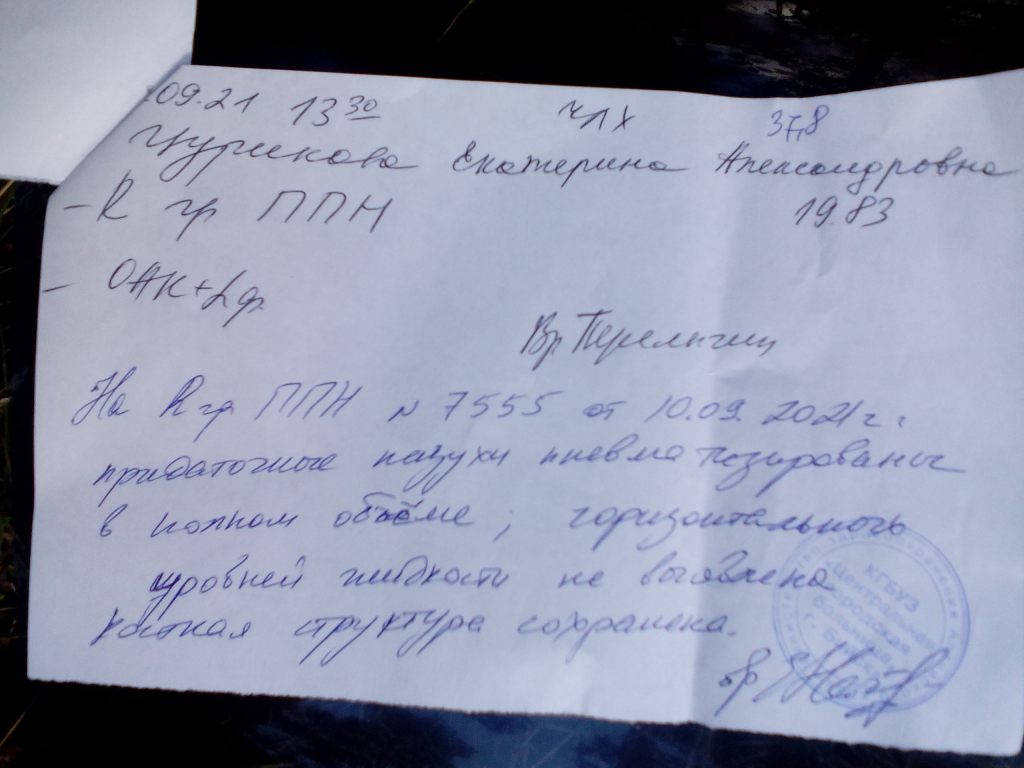 .09.21 13 30 ЧЛХ 37,8
Цурикова Екатерина Александровна
- R гр ППН 19.83
- ОАК + Lф
Вр
На R гр ППН N 7555 от 10.09.2021 г.
придаточные пазухи пневматизированы
в полном объёме; горизонтального
уровней жидкости не выявлено.
Костная структура сохранена.
вр
КГБУЗ
«Центральная
городская
больница